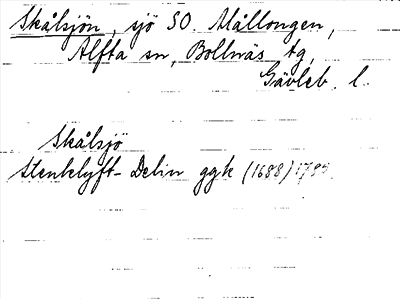 Skålsjön, sjö SO. Mållongen,
Alfta sn, Bollnäs tg,
Gävleb. l.
Skålsjö
Stenklyft-Delin ggk (1688) 1785